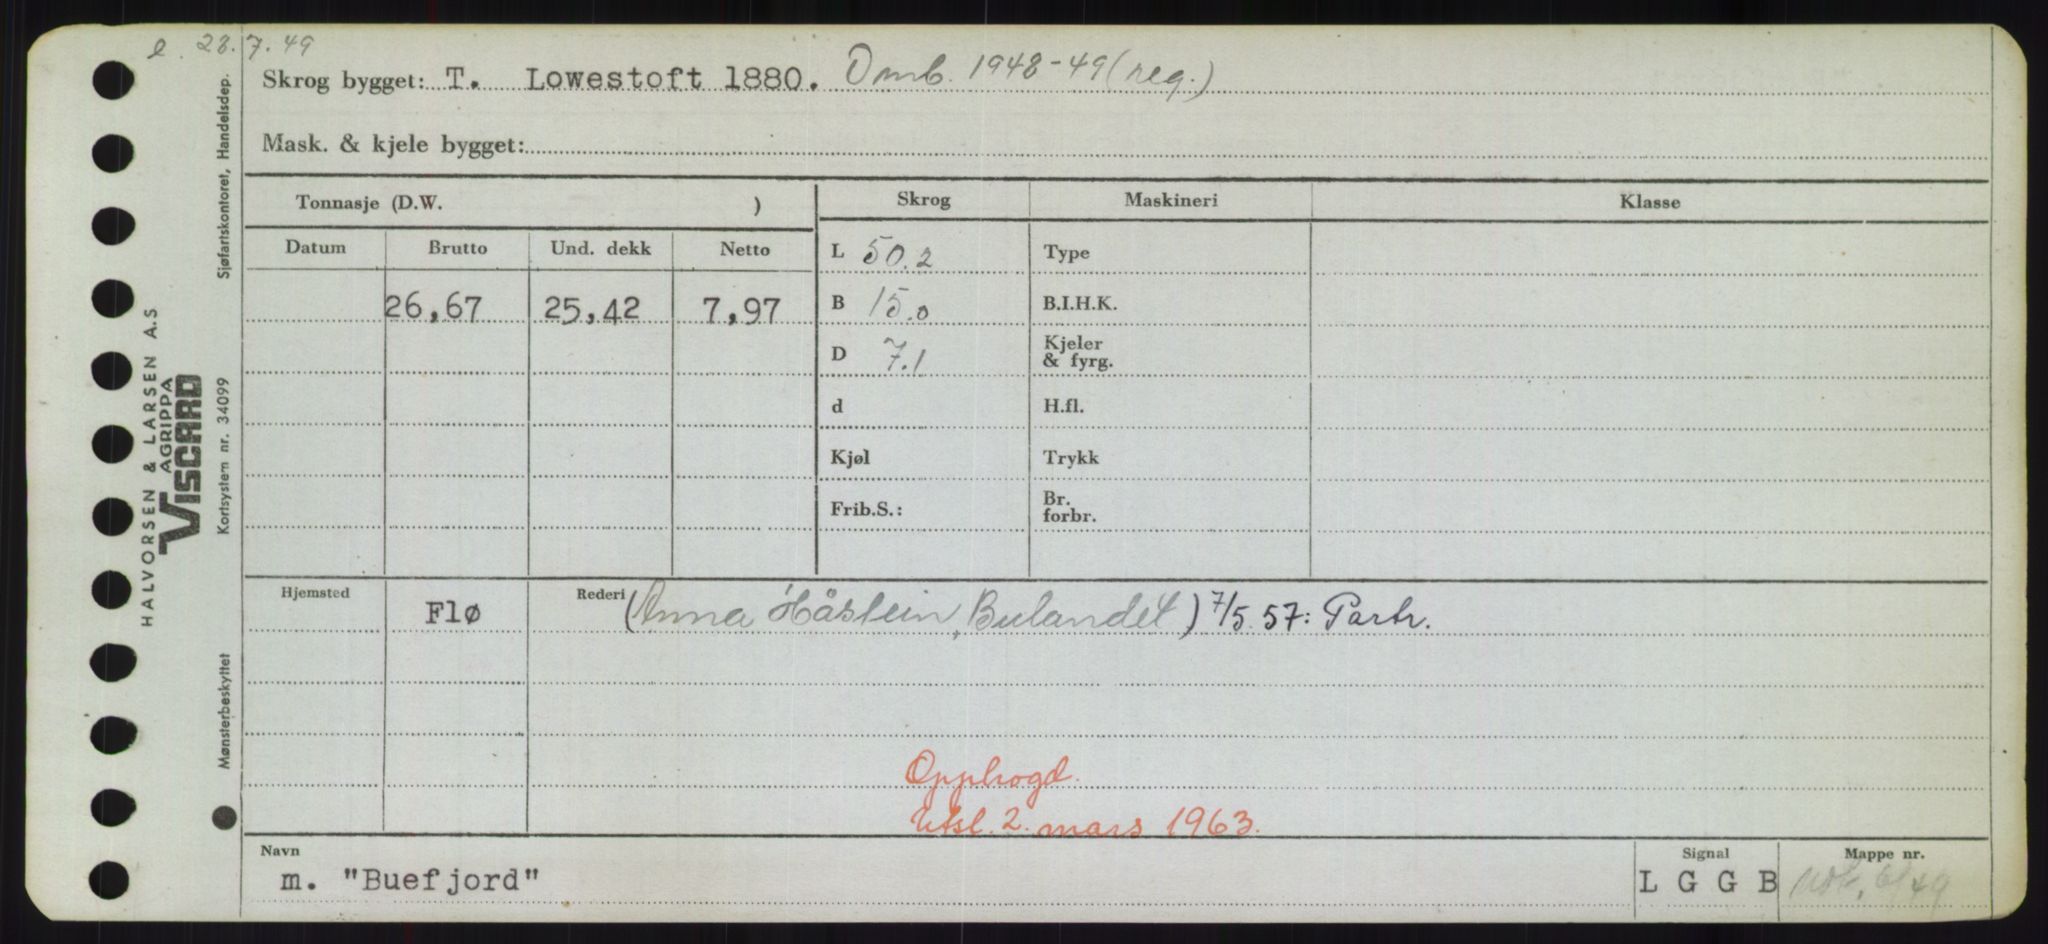 e. 28.7.49
Skrog bygget: T. Lowestoft 1880. Omb. 1948-49 (reg.)
Mask. & kjele bygget:
Tonnasje (D.W. )
Skrog Maskineri Klasse
Datum Brutto Und. dekk Netto
26,67 25,42 7,97
L 50.2 Type
B 15.0 B.I.H.K.
D 7.1 Kjeler & fyrg.
d H.fl.
Kjøl Trykk
Frib.S.: Br. forbr.
Hjemsted Flø
Rederi (Anna Håstein, Bulandet) 7/5 57: Partr.
Opphogd.
Utsl. 2. mars 1963.
Navn Signal Mappe nr.
m. "Buefjord" L G G B 6/49
HALVORSEN & LARSEN A.S
AGRIPPA
VISCARD
Mønsterbeskyttet Kortsystem nr. 34099 Sjøfartskontoret, Handelsdep.